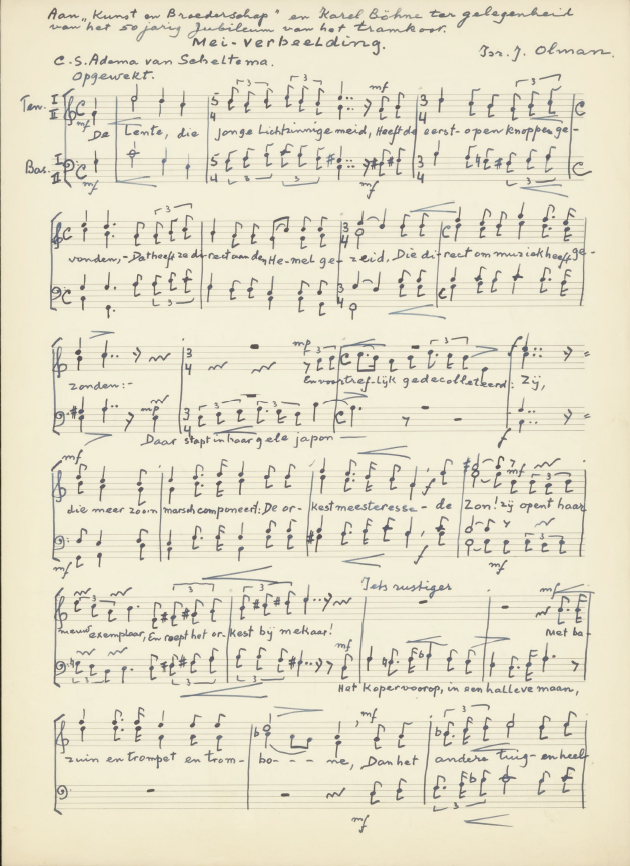 Aan „Kunst en Broederschap" en Karel Böhne ter gelegenheid
van het 50 jarig Jubileum van het tramkoor.
Mei-verbeelding.
C.S. Adema van Scheltema.
Isr. J. Olman.
Opgewekt.
Ten. I II
mf
mf
De Lente, die jonge lichtzinnige meid, Heeft de eerst-open knoppen ge-
Bas. I II
mf
mf
vonden,- Dat heeft ze direct aan den Hemel ge-zeid, Die di-rect om muziek heeft ge-
mf
zonden:- En voortref-lijk gedecolleteerd: Zij,
mf
f
Daar stapt in haar gele japon
f
mf
mf
die meer zo'n marsch componeert: De or-kestmeesteresse-de Zon! zij opent haar
f
mf
f
mf
Iets rustiger
mf
nieuw exemplaar, En roept het or-kest bij mekaar! Met ba-
mf
Het Koper voorop, in een halleve maan,
mf
zuin en trompet en trom-bo---ne, Dan het andere tuig-en heelt
mf